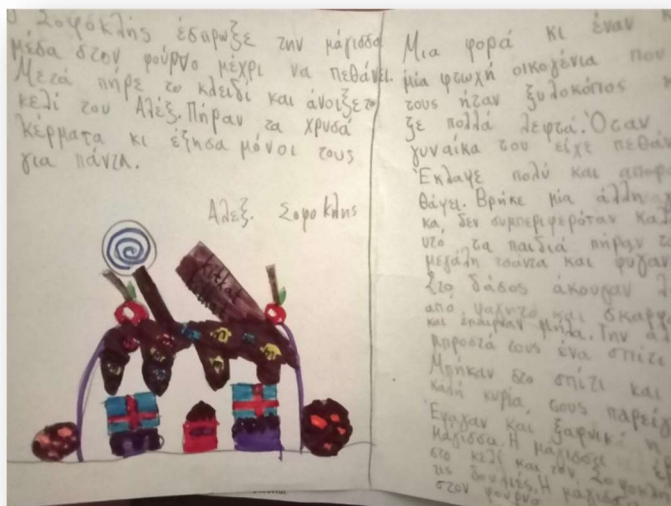 Ο Σοφόκλης έσπρωξε την μάγισσα
μέσα στον φούρνο μέχρι να πεθάνει.
Μετά πήρε το κλειδί και άνοιξε το
κελί του Αλέξ. Πήραν τα χρυσά
κέρματα κι έζησα μόνοι τους
για πάντα.
Αλεξ. Σοφοκλής
kitkat
Μια φορά κι έναν
μία φτωχή οικογένια που
τους ήταν ξυλοκόπος
ζε πολλά λεφτά. Όταν
γυναίκα του είχε πεθάν
Έκλαψε πολύ και αποφά
θάψει. Βρήκε μία άλλη
κα, δεν συμπεριφερόταν καλ
τα παιδιά πήραν
μεγάλη τσάντα και φύγαν
Στο δάσος άκουραν
από και
και έπαιρναν μήλα. Την
μπροστά τους ένα σπίτι
Μπήκαν στο σπίτι και
καλή κυρία, τους
Έφαγαν και ξαφνικ
μάγισσα. Η μάγισσα
στο κελί και τον Σοφοκλ
τις δουλιές. Η μάγισσ
στον φούρνο